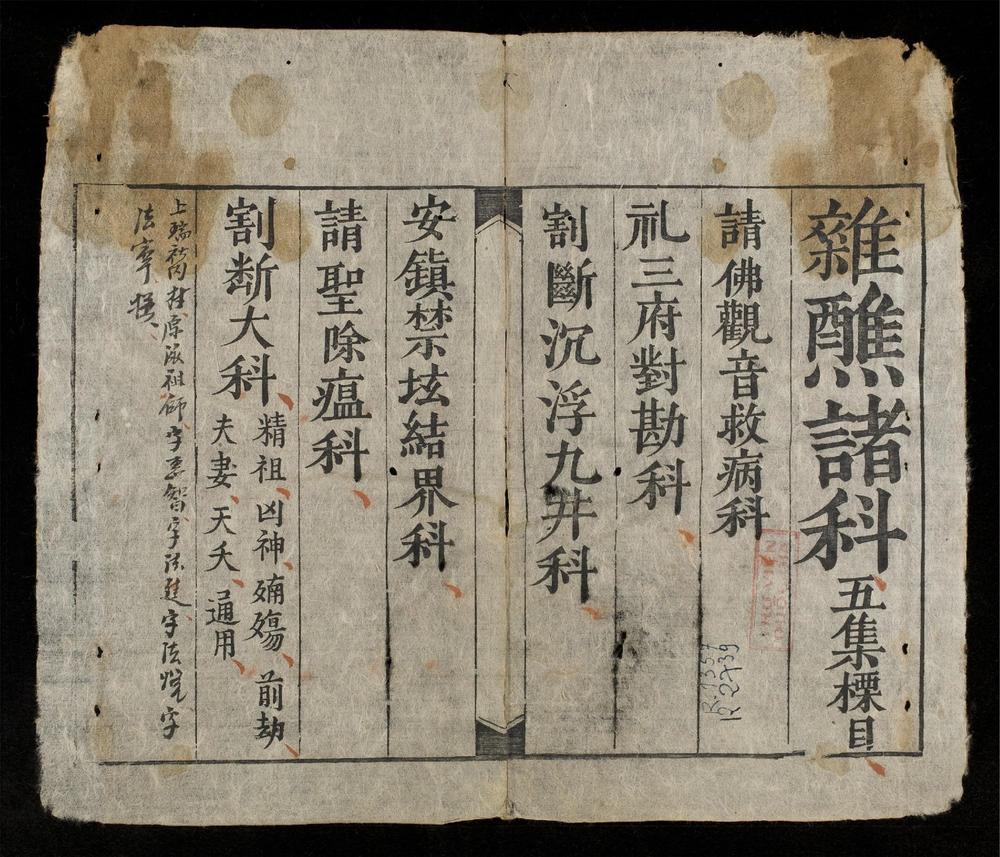 雜醮諸科五集標目
請佛觀音救病科
礼三府對勘科
割斷沉浮九井科
安鎮禁坛結界科
請聖除瘟科
割断大科
精祖凶神 殤 前劫
夫妻天夭通用
上瑞 村 派祖師字 智字法 字法 字
法 撰
R.1357
R 2739